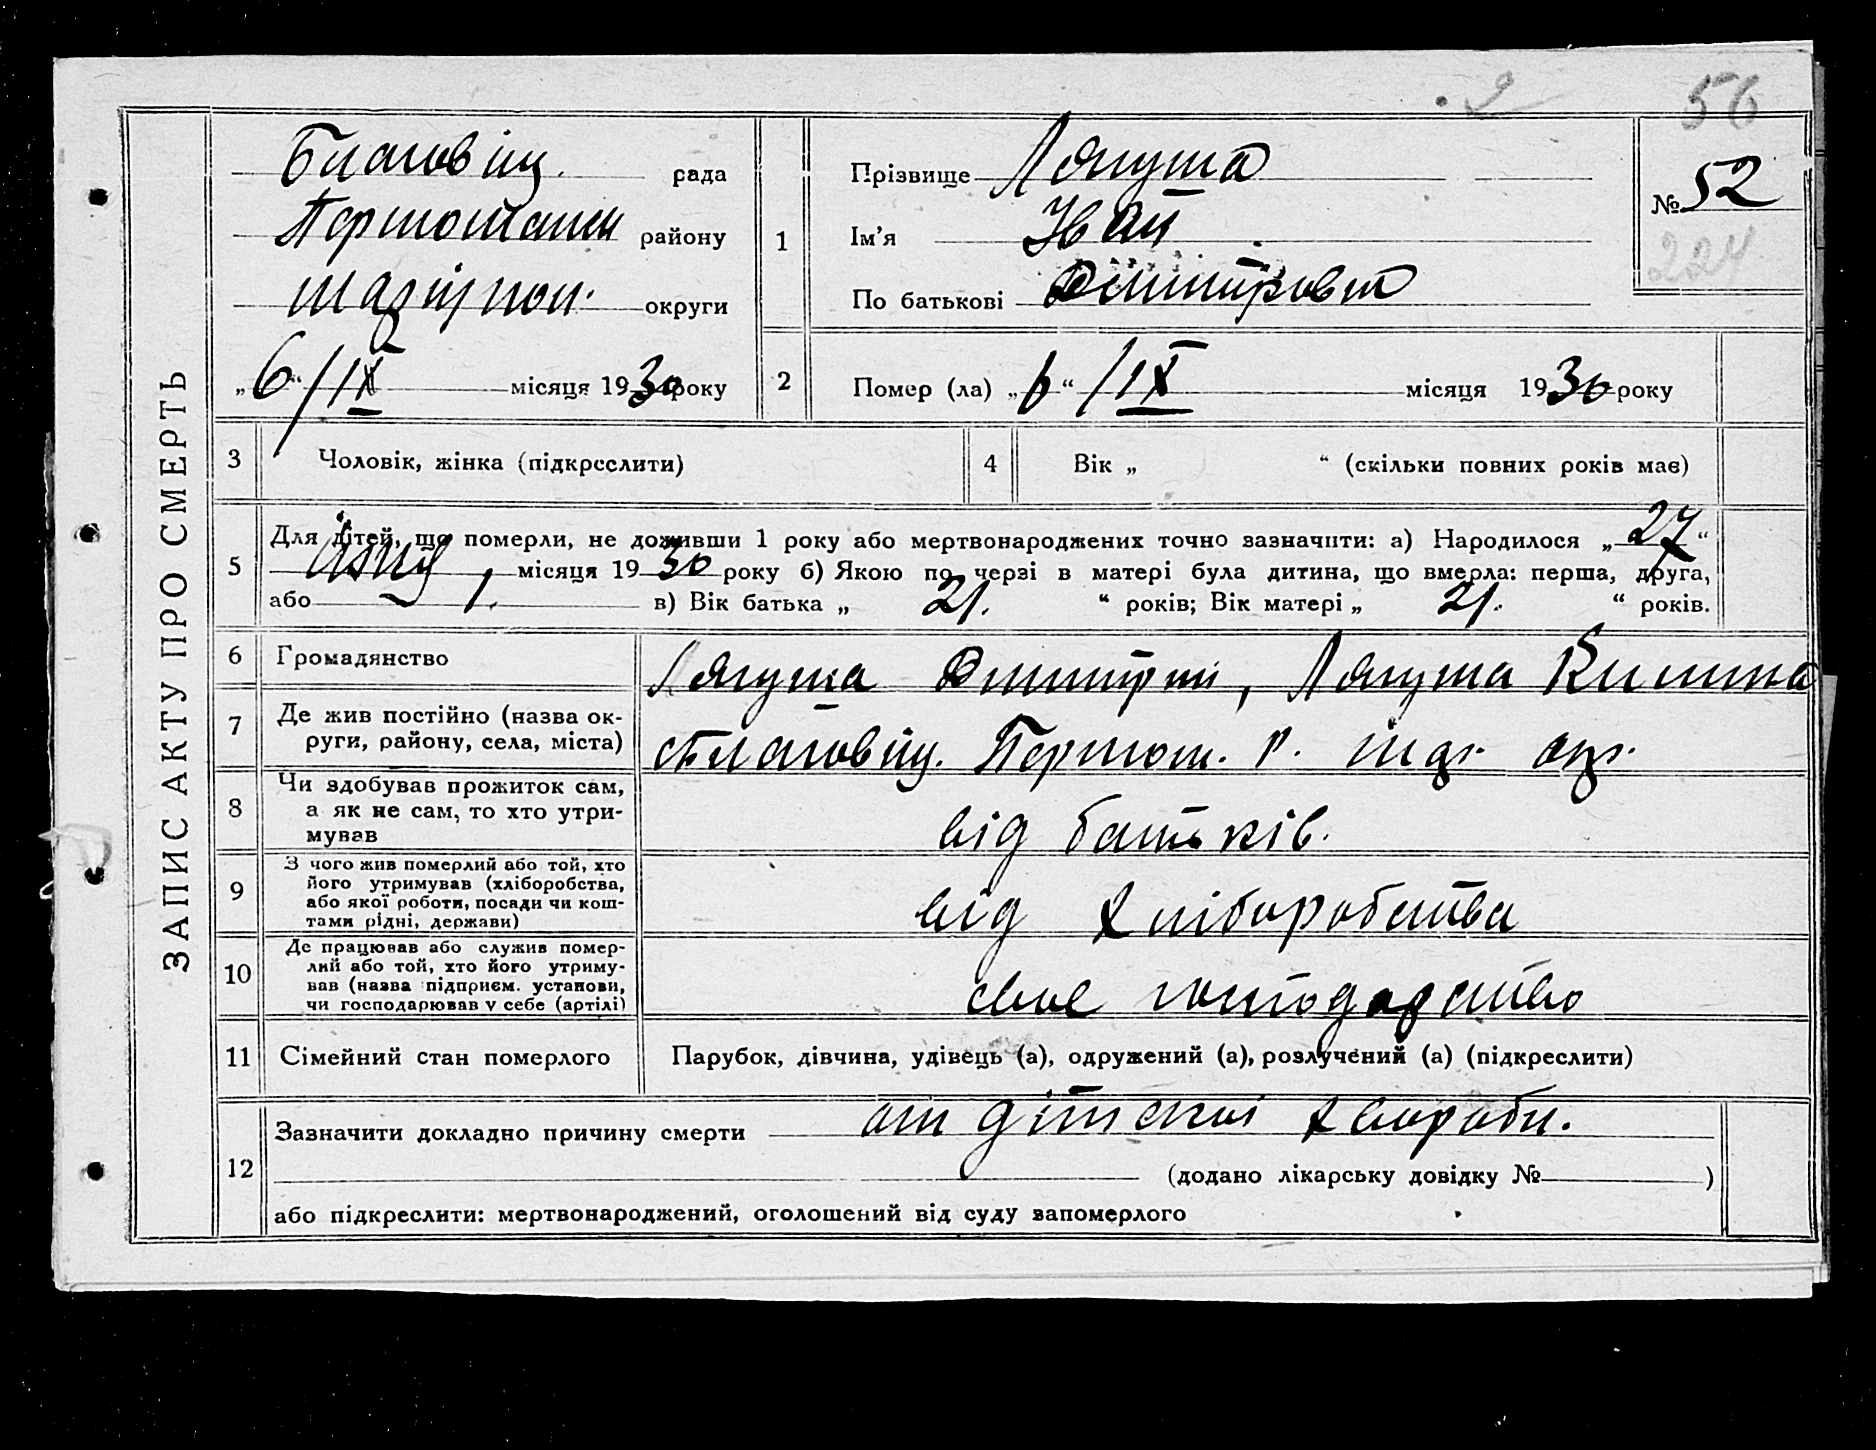 2 56
ЗАПИС АКТУ ПРО СМЕРТЬ
Благовіщ. рада
району
округи
„6“ /IX місяця 1930 року
1
Прізвище
Ім'я Іван
По батькові
№ 52
224
2
Помер (ла) „6“ /IX місяця 1930 року
3 Чоловік, жінка (підкреслити)
4 Вік „ “ (скільки повних років має)
5 Для дітей, що померли, не доживши 1 року або мертвонароджених точно зазначити: а) Народилося „27“
місяця 1930 року б) Якою по черзі в матері була дитина, що вмерла: перша, друга,
або 1. в) Вік батька „ 21. “ років; Вік матері „ 21. “ років.
6 Громадянство
7 Де жив постійно (назва ок-
руги, району, села, міста)
8 Чи здобував прожиток сам,
а як не сам, то хто утри-
мував
від батьків.
9 З чого жив померлий або той, хто
його утримував (хліборобства,
або якої роботи, посади чи кош-
тами рідні, держави)
від хліборобства
10 Де працював або служив помер-
лий або той, хто його утриму-
вав (назва підприєм. установи,
чи господарював у себе (артілі)
своє господарство
11 Сімейний стан померлого Парубок, дівчина, удівець (а), одружений (а), розлучений (а) (підкреслити)
12 Зазначити докладно причину смерти от дітскої хвороби.
(додано лікарську довідку № )
або підкреслити: мертвонароджений, оголошений від суду запомерлого